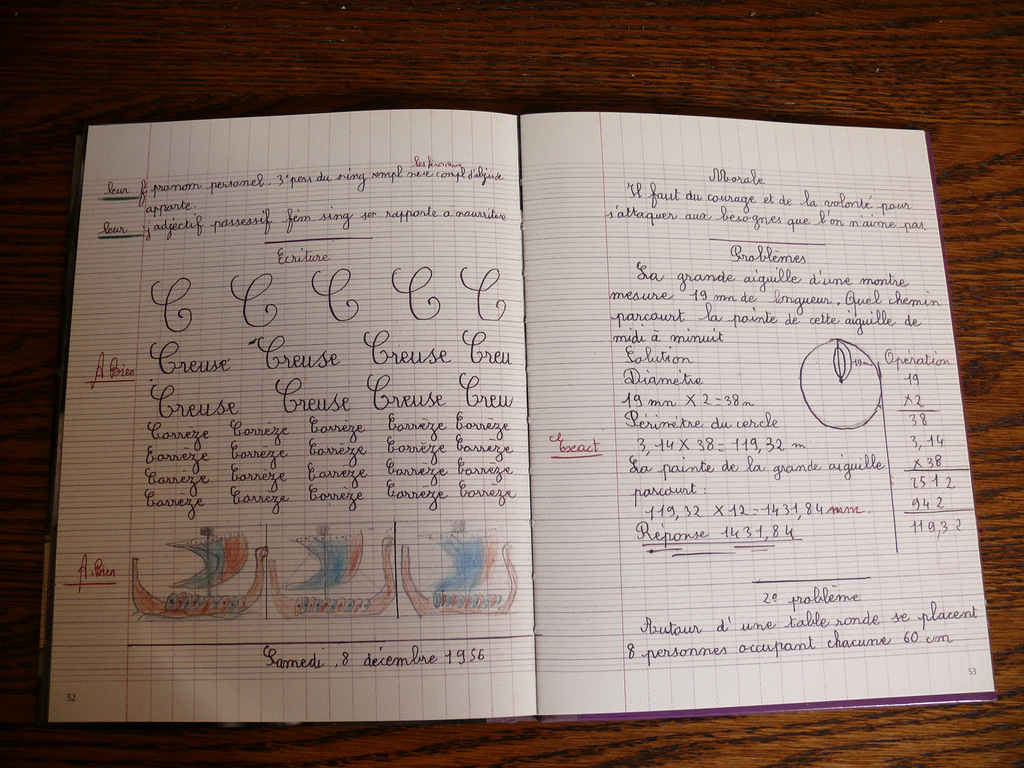 leur f pronom personel. 3e pers du sing compl d'objet de
apporte.
leur j'adjectif possessif fém sing se rapporte a nourriture
Ecriture
C C C C C
A. Bien
Creuse Creuse Creuse Creu
Creuse Creuse Creuse Creu
Corrèze Corrèze Corrèze Corrèze Corrèze
Corrèze Corrèze Corrèze Corrèze Corrèze
Corrèze Corrèze Corrèze Corrèze Corrèze
Corrèze Corrèze Corrèze Corrèze Corrèze
A. Bien
Samedi, 8 décembre 1956
52
Morale
Il faut du courage et de la volonté pour
s'attaquer aux besognes que l'on n'aime pas.
Problèmes
La grande aiguille d'une montre
mesure 19 mn de longueur. Quel chemin
parcourt la pointe de cette aiguille de
midi à minuit
Solution
Diamètre
19 mn X 2 = 38 m
Périmètre du cercle
Exact
3,14 X 38 = 119,32 m
La pointe de la grande aiguille
parcourt :
119,32 X 12 = 1431,84 mm.
Réponse 1431,84
19 m
Opération
19
X2
38
3,14
X 38
2512
942
119,32
2e problème
Autour d'une table ronde se placent
8 personnes occupant chacune 60 cm
53